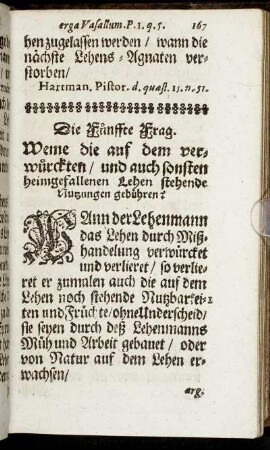 erga Vasallum. P. 1. q. 5. 167
hen zugelassen werden / wann die
nächste Lehens-Agnaten ver-
storben /
Hartman, Pistor. d. quæst. 15. n. 51.
Die Fünffte Frag.
Weme die auf dem ver-
würckten / und auch sonsten
heimgefallenen Lehen stehende
Nutzungen gebühren?
WAnn der Lehenmann
das Lehen durch Miß-
handelung verwürcket
und verlieret / so verlie-
ret er zumalen auch die auf dem
Lehen noch stehende Nutzbarkei-
ten und Früchte / ohne Underscheid /
sie seyen durch deß Lehenmanns
Müh und Arbeit gebauet / oder
von Natur auf dem Lehen er-
wachsen /
arg.